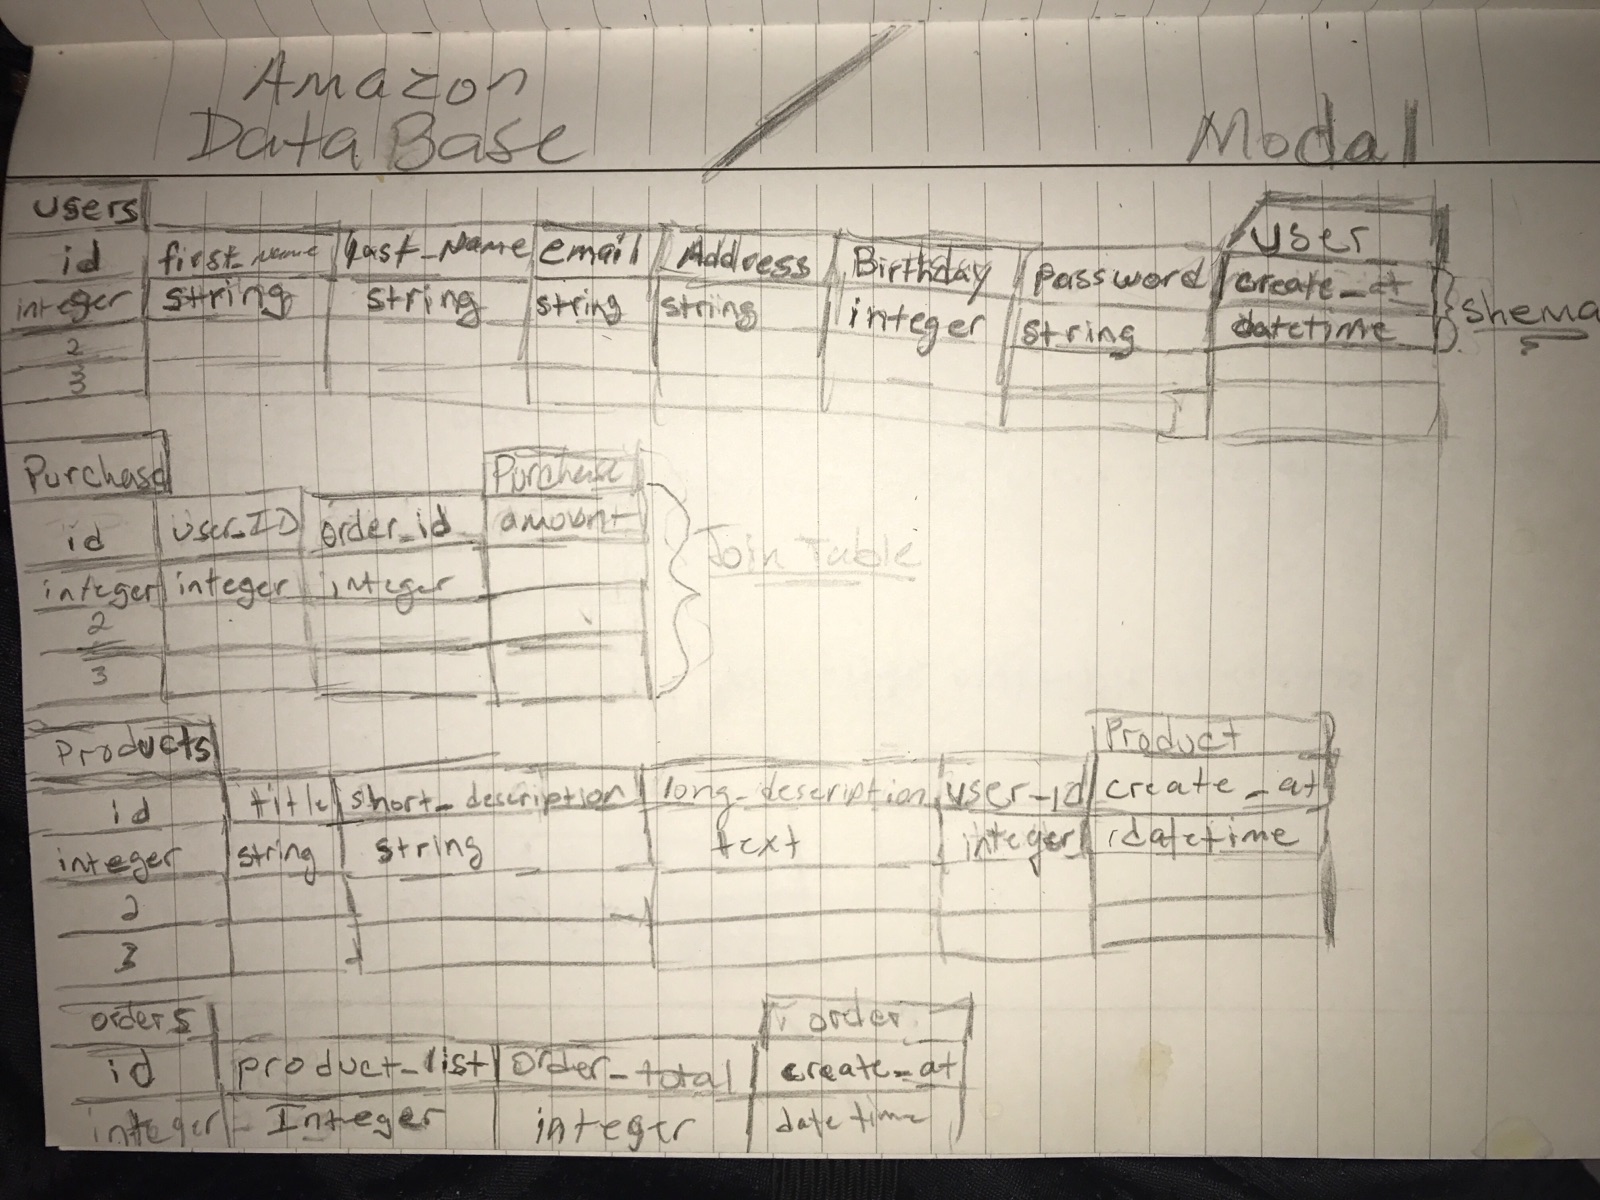 Amazon
Data Base
Modal
users
User
id first_name Last_Name email Address Birthday password create_at
integer string string string string integer string datetime
shema
2
3
Purchased
Purchase
id user_ID order_id amount
Join Table
integer integer integer
2
3
Products
Product
id title short_description long_description user_id create_at
integer string string text integer datetime
2
3
orders
order
id product_list order_total create_at
integer Integer integer datetime